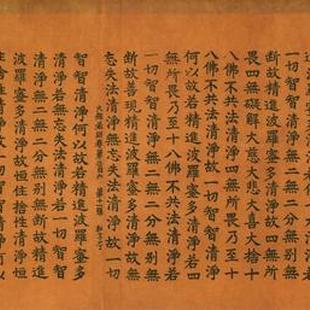 一切智智清淨無二無二分無別無
斷故精進波羅蜜多清淨故四無所
畏四無礙解大慈大悲大喜大捨十
八佛不共法清淨四無所畏乃至十
八佛不共法清淨故一切智智清淨
何以故若精進波羅蜜多清淨若四
無所畏乃至十八佛不共法清淨若
一切智智清淨無二無二分無別無
斷故善現精進波羅蜜多清淨故無
忘失法清淨無忘失法清淨故一切
智智清淨何以故若精進波羅蜜多
清淨若無忘失法清淨若一切智智
清淨無二無二分無別無斷故精進
波羅蜜多清淨故恒住捨性清淨恒
住捨性清淨故一切智智清淨何以